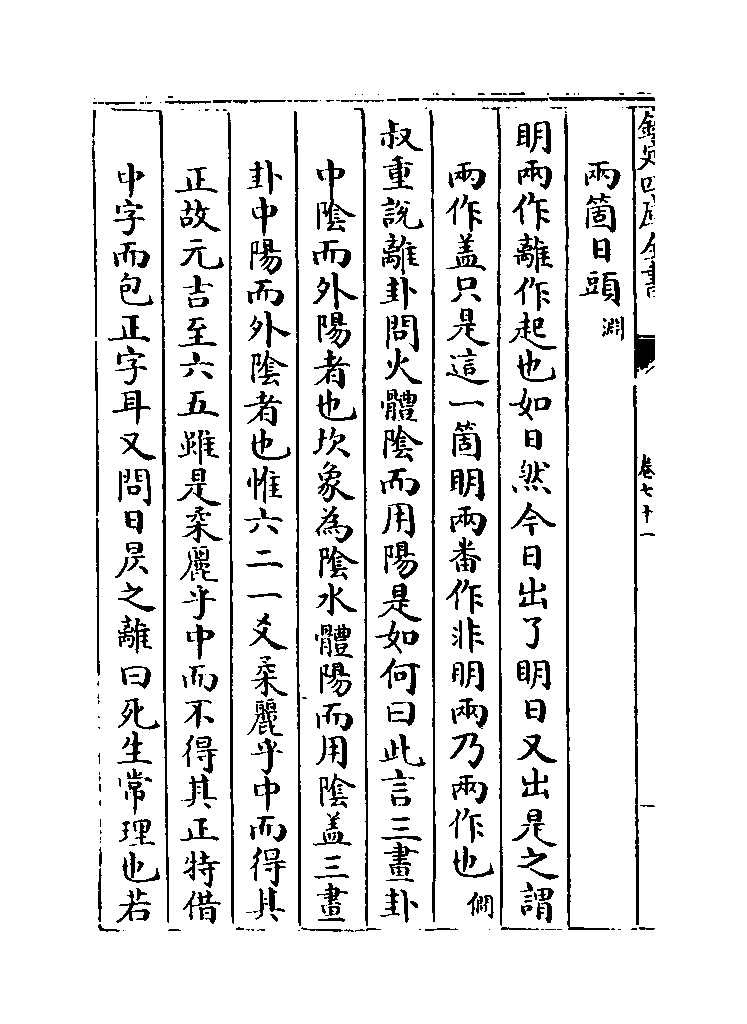 欽定四庫全書
卷七十一
兩箇日頭淵
明兩作離作起也如日然今日出了明日又出是之謂
兩作盖只是這一箇明兩番作非明兩乃兩作也僩
叔重說離卦問火體陰而用陽是如何曰此言三畫卦
中陰而外陽者也坎象為陰水體陽而用陰盖三畫
卦中陽而外陰者也惟六二一爻柔麗乎中而得其
正故元吉至六五雖是柔麗乎中而不得其正特借
中字而包正字耳又問日昃之離曰死生常理也若